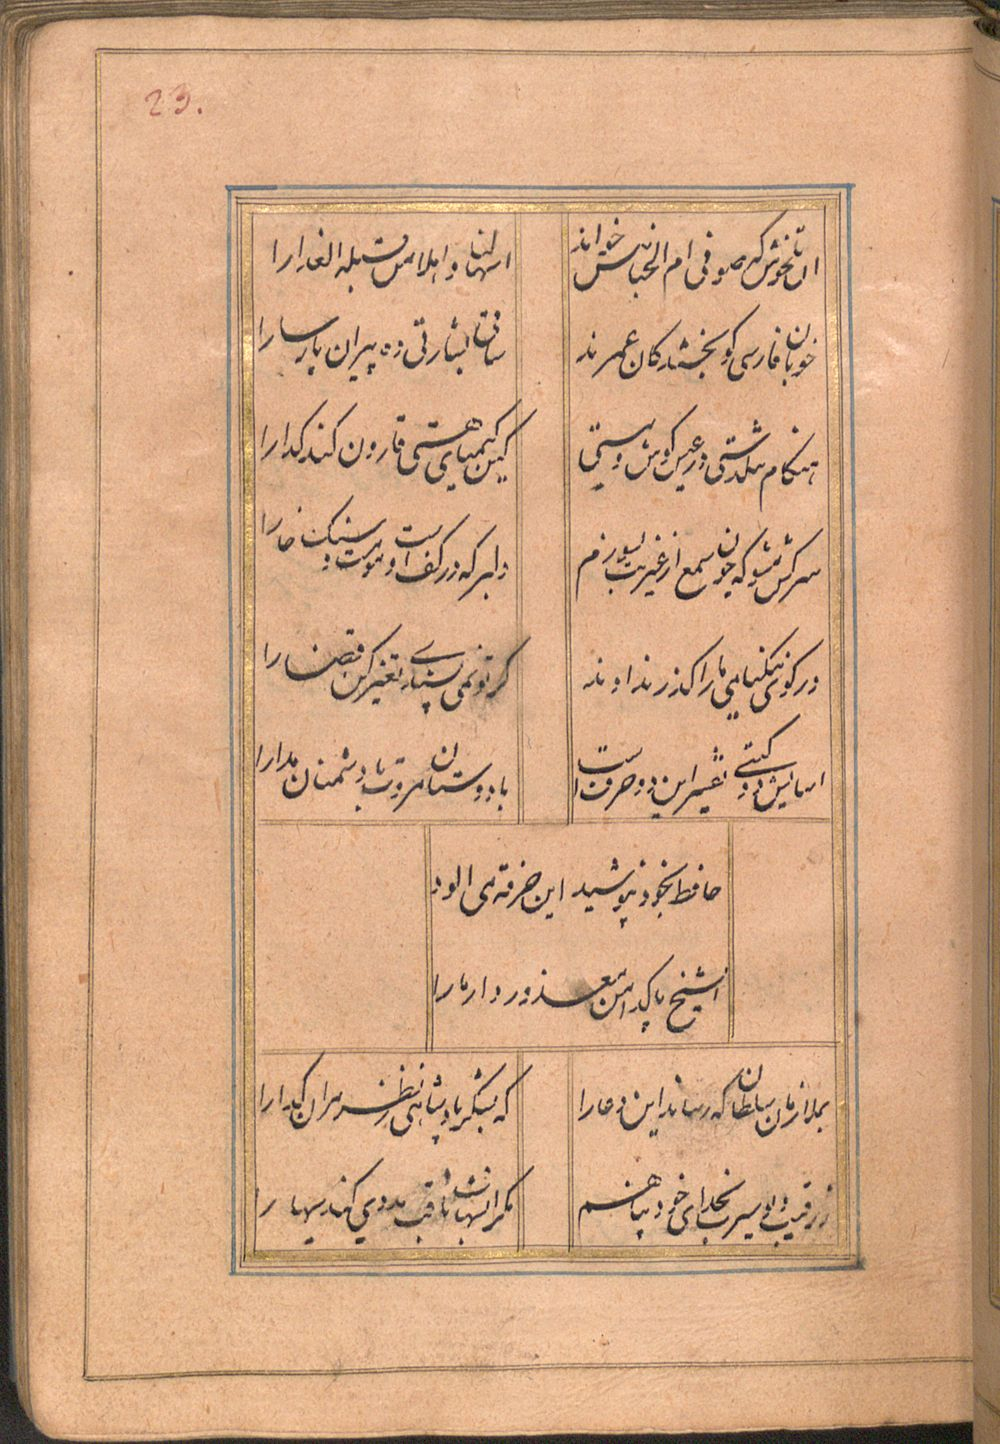 23.
ان تلخوش که صوفی ام الخبائثش خواند
اشهی لنا و احلی من قبلة العذارا
خوبان فارسی کو بخشندکان عمرند
ساقی بشارتی ده پیران پارسا را
هنکام تنکدستی در عیش کوش و مستی
کین کیمیای هستی قارون کند کدا را
سرکش مشو که چون شمع از غیرتت بسوزم
دلبر که در کف او موم است سنک خارا
در کوی نیکنامی ما را کذر ندادند
کر تو نمی پسندی تغییر کن قضا را
اسایش دو کیتی تفسیر این دو حرفست
با دوستان مروت با دشمنان مدارا
حافظ بخود نپوشید این خرقه می الود
ای شیخ پاکدامن معذور دار ما را
بملازمان سلطان که رساند این دعا را
که بشکر پادشاهی ز نظر مران کدا را
ز رقیب دیو سیرت بخدای خود پناهم
مکر ان شهاب ثاقب مددی کند سها را